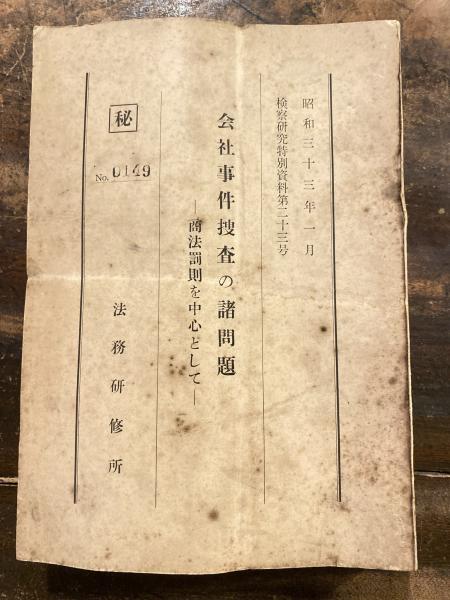 昭和三十三年一月
検察研究特別資料第二十三号
会社事件捜査の諸問題
―商法罰則を中心として―
秘
No. 0149
法務研修所